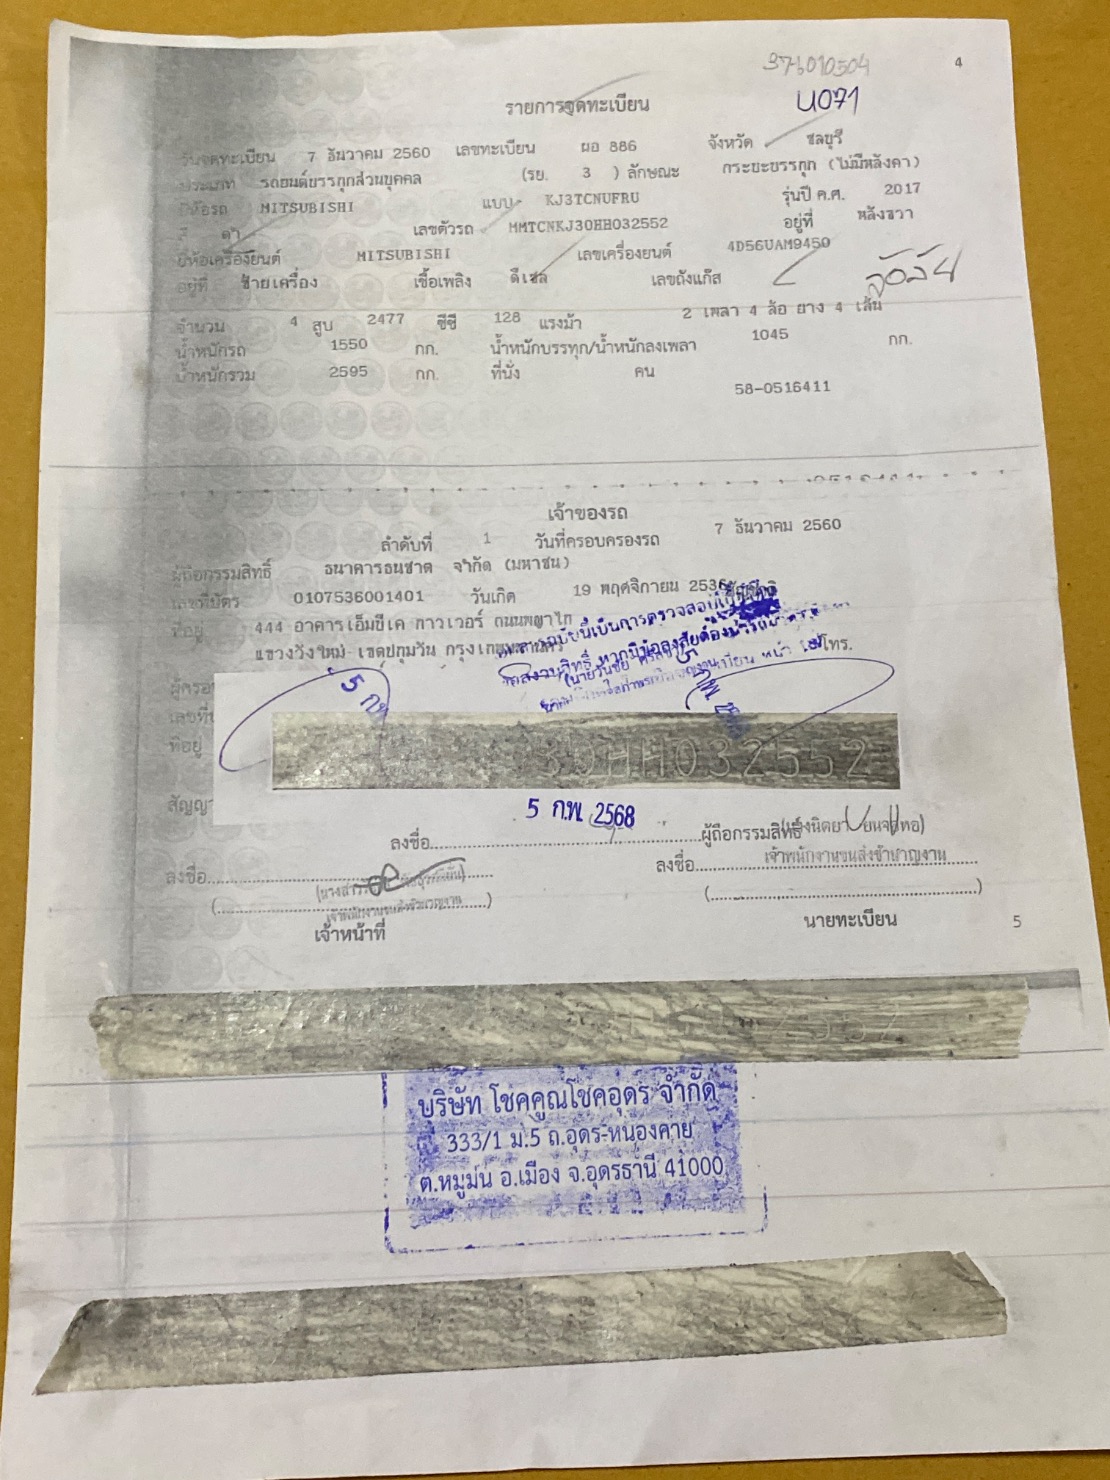 376010504
4
รายการจดทะเบียน
U071
วันจดทะเบียน 7 ธันวาคม 2560 เลขทะเบียน ผอ 886 จังหวัด ชลบุรี
ประเภท รถยนต์บรรทุกส่วนบุคคล (รย. 3 ) ลักษณะ กระบะบรรทุก (ไม่มีหลังคา)
ยี่ห้อรถ MITSUBISHI แบบ KJ3TCNUFRU รุ่นปี ค.ศ. 2017
สี ดำ เลขตัวรถ MMTCNKJ30HH032552 อยู่ที่ หลังขวา
ยี่ห้อเครื่องยนต์ MITSUBISHI เลขเครื่องยนต์ 4D56UAM9450
อยู่ที่ ซ้ายเครื่อง เชื้อเพลิง ดีเซล เลขถังแก๊ส
จำนวน 4 สูบ 2477 ซีซี 128 แรงม้า 2 เพลา 4 ล้อ ยาง 4 เส้น
น้ำหนักรถ 1550 กก. น้ำหนักบรรทุก/น้ำหนักลงเพลา 1045 กก.
น้ำหนักรวม 2595 กก. ที่นั่ง คน
58-0516411
เจ้าของรถ
ลำดับที่ 1 วันที่ครอบครองรถ 7 ธันวาคม 2560
ผู้ถือกรรมสิทธิ์ ธนาคารธนชาต จำกัด (มหาชน)
เลขที่บัตร 0107536001401 วันเกิด 19 พฤศจิกายน 2536
ที่อยู่ 444 อาคารเอ็มบีเค ทาวเวอร์ ถนนพญาไท
แขวงวังใหม่ เขตปทุมวัน กรุงเทพมหานคร โทร.
ผู้ครอบ
เลขที่บ
ที่อยู่
5 ก.พ.
30HH032552
สัญญา
5 ก.พ. 2568
ลงชื่อ ผู้ถือกรรมสิทธิ์
เจ้าพนักงานขนส่งชำนาญงาน
ลงชื่อ ลงชื่อ
เจ้าพนักงานขนส่งชำนาญงาน
เจ้าหน้าที่ นายทะเบียน 5
บริษัท โชคคูณโชคอุดร จำกัด
333/1 ม.5 ถ.อุดร-หนองคาย
ต.หมูม่น อ.เมือง จ.อุดรธานี 41000